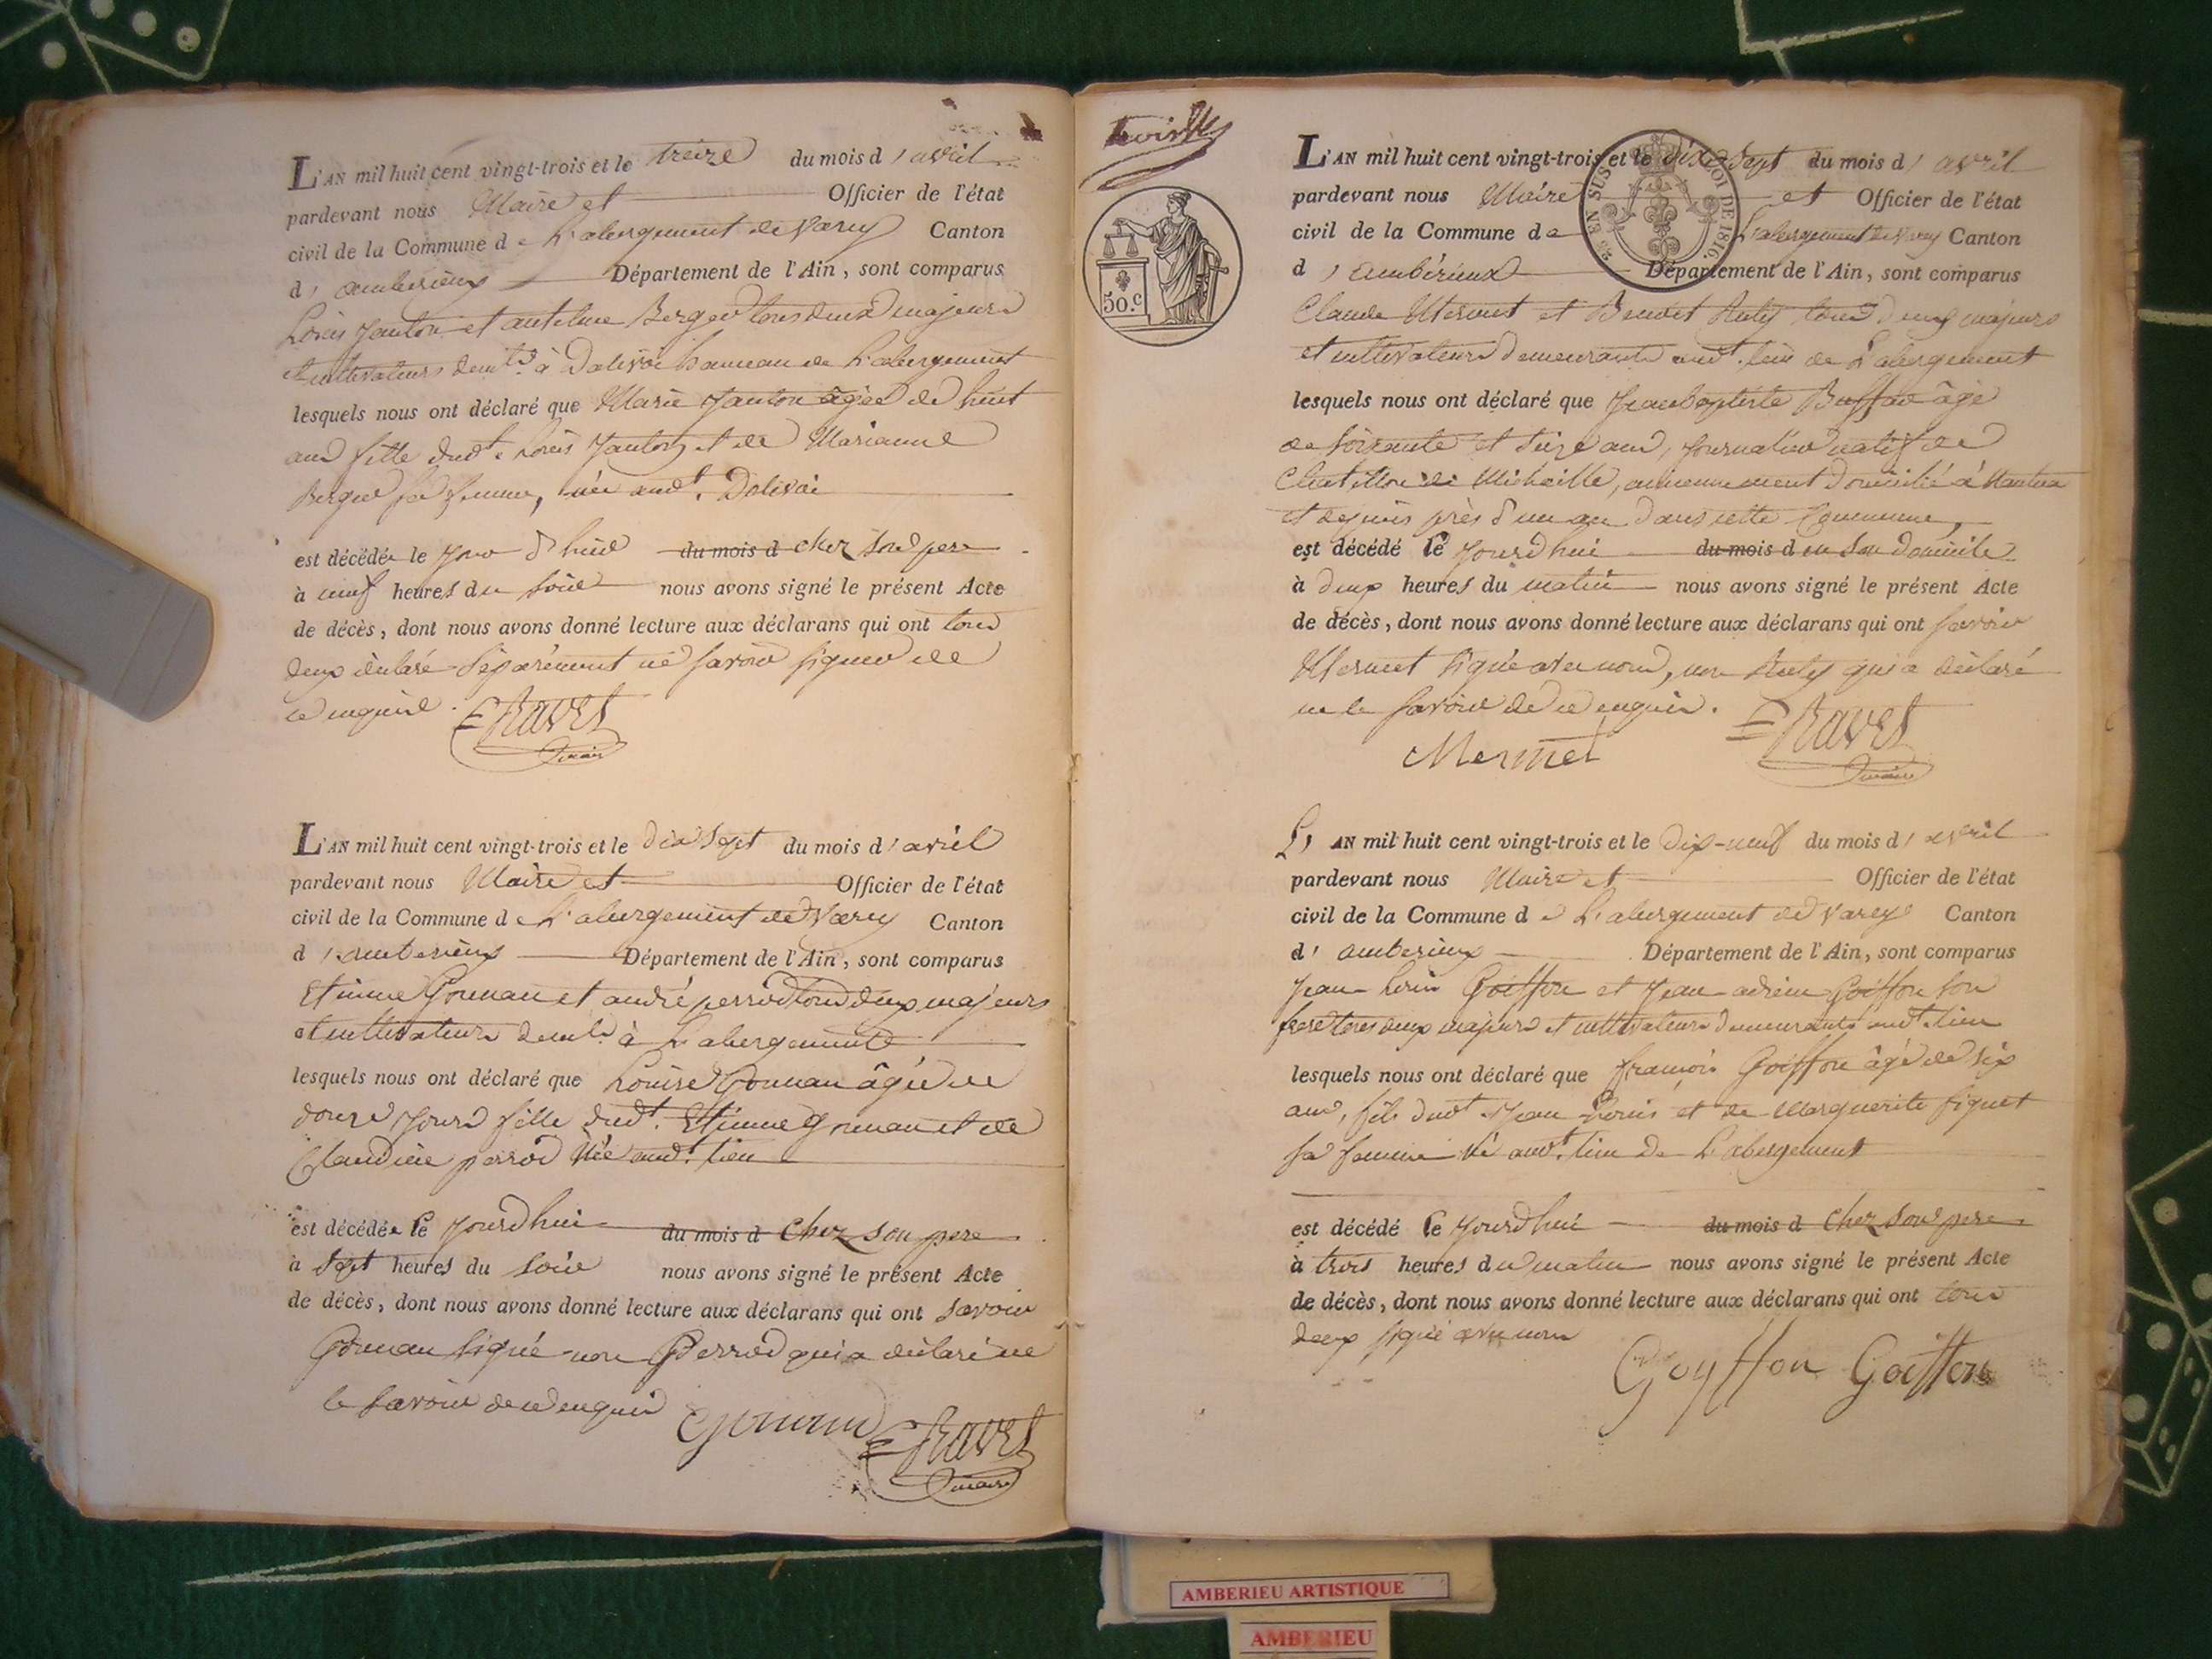 L'AN mil huit cent vingt-trois et le treize du mois d'avril
pardevant nous Maire et Officier de l'état
civil de la Commune de L'abergement de Varey Canton
d'amberieux Département de l'Ain, sont comparus
Louis Janton et antelme Berger tous deux majeurs
et cultivateurs demts à Dalivoi hameau de L'abergement
lesquels nous ont déclaré que Marie Janton âgée de huit
ans fille dudt Louis Janton et de Marianne
Berger sa femme, née audt. Dalivoi
est décédée le jour d'hui du mois d chez son pere
à neuf heures du soir nous avons signé le présent Acte
de décès, dont nous avons donné lecture aux déclarans qui ont tous
deux déclaré séparément ne savoir signer de
ce enquis.
Ravet
maire
L'AN mil huit cent vingt-trois et le dix sept du mois d'avril
pardevant nous Maire et Officier de l'état
civil de la Commune de L'abergement de Varey Canton
d'amberieux Département de l'Ain, sont comparus
Etienne Gonnan et andré perrod tous deux majeurs
et cultivateurs demts à L'abergement
lesquels nous ont déclaré que Louise Gonnan âgée de
douze jours fille dudt. Etienne Gonnan et de
Claudine perrod née audt. lieu
est décédée le jourd'hui du mois d chez son pere
à sept heures du soir nous avons signé le présent Acte
de décès, dont nous avons donné lecture aux déclarans qui ont savoir
Gonnan signé non Perrod qui a déclaré ne
le savoir de ce enquis
Ravet
maire
50.c
L'AN mil huit cent vingt-trois et le dix-sept du mois d'avril
pardevant nous Maire et Officier de l'état
civil de la Commune de L'abergement de Varey Canton
d'ambérieux Département de l'Ain, sont comparus
EN SUS LOI DE 1816.
Claude Mermet et Benoit Ruty tous deux majeurs
et cultivateurs demeurants audt. lieu de L'abergement
lesquels nous ont déclaré que Jean baptiste Buffav âgé
de soixante et seize ans, journalier natif de
Chatillon de Michaille, anciennement domicilié à Nantua
et depuis près d'un an dans cette Commune,
est décédé le jourd'hui du mois d en son domicile
à deux heures du matin nous avons signé le présent Acte
de décès, dont nous avons donné lecture aux déclarans qui ont savoir
Mermet signé avec nous, non Ruty qui a déclaré
ne le savoir de ce enquis.
Mermet
Ravet
maire
L'AN mil huit cent vingt-trois et le dix-neuf du mois d'avril
pardevant nous Maire et Officier de l'état
civil de la Commune de L'abergement de Varey Canton
d'amberieux Département de l'Ain, sont comparus
Jean-Louis Goiffon et Jean-adrien Goiffon son
frere tous deux majeurs et cultivateurs demeurants audt. lieu
lesquels nous ont déclaré que françois Goiffon âgé de six
ans, fils dudt. Jean Louis et de Marguerite figuet
sa femme né audt. lieu de L'abergement
est décédé le jourd'hui du mois d chez son pere
à trois heures du matin nous avons signé le présent Acte
de décès, dont nous avons donné lecture aux déclarans qui ont tous
deux signé avec nous
Goyffon Goiffon
AMBERIEU ARTISTIQUE
AMBERIEU